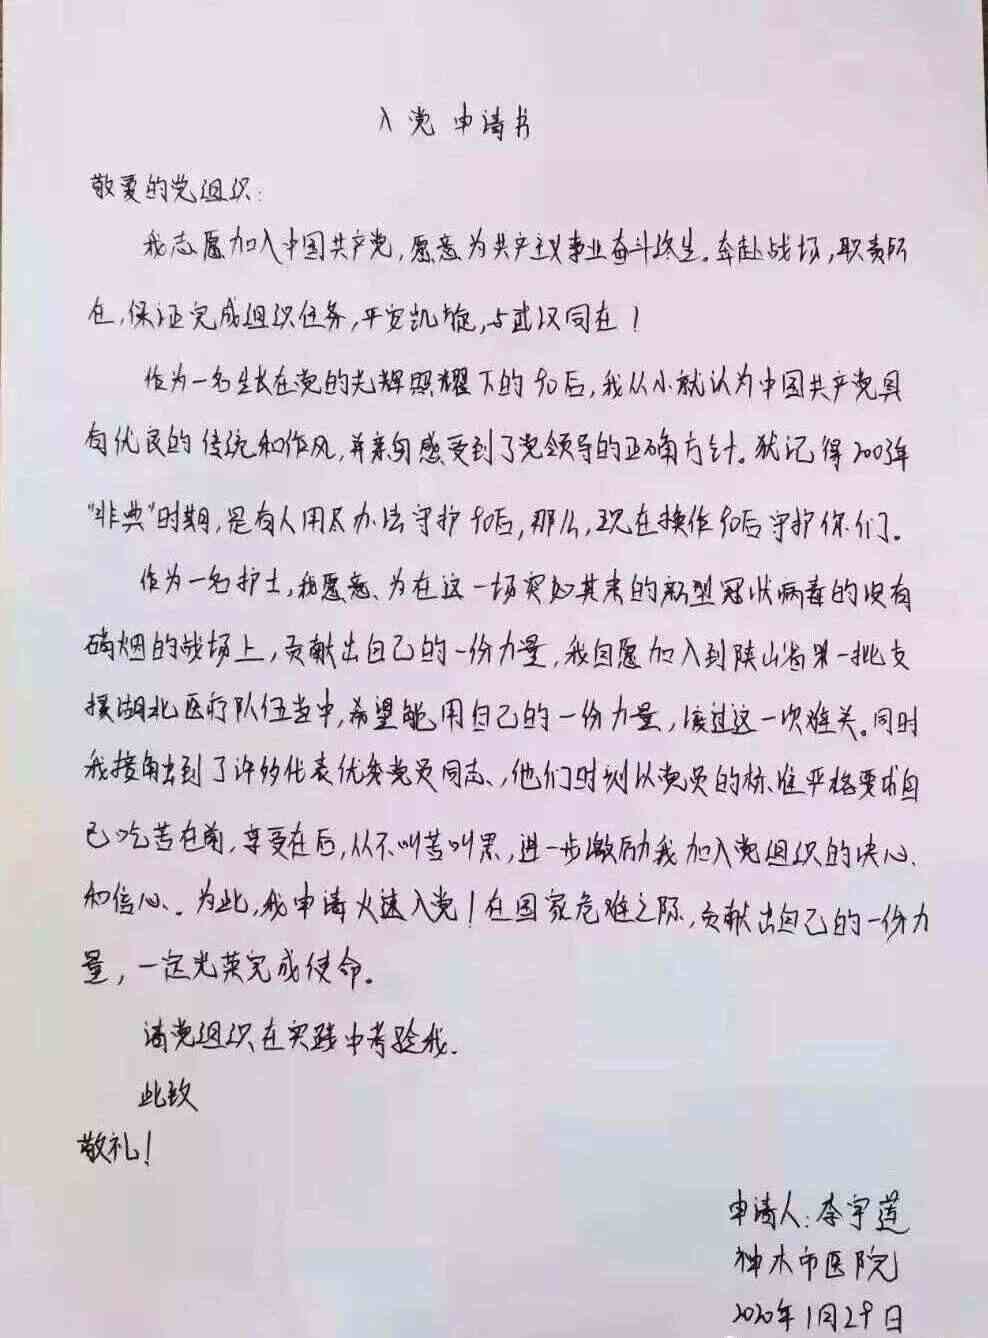 入党申请书
敬爱的党组织:
我志愿加入中国共产党,愿意为共产主义事业奋斗终生。奔赴战场,职责所
在,保证完成组织任务,平安凯旋,与武汉同在!
作为一名生长在党的光辉照耀下的90后,我从小就认为中国共产党具
有优良的传统和作风,并亲身感受到了党领导的正确方针。犹记得2003年
"非典"时期,是有人用尽办法守护90后,那么,现在换作90后守护你们。
作为一名护士,我愿意、为在这一场突如其来的新型冠状病毒的没有
硝烟的战场上,贡献出自己的一份力量,我自愿加入到陕西省第一批支
援湖北医疗队伍当中,希望能用自己的一份力量,渡过这一次难关。同时
我接触到了许多代表优秀党员同志、,他们时刻以党员的标准严格要求自
己吃苦在前,享受在后,从不叫苦叫累,进一步激励我加入党组织的决心、
和信心。为此,我申请火速入党!在国家危难之际,贡献出自己的一份力
量,一定光荣完成使命。
请党组织在实践中考验我.
此致
敬礼!
申请人:李宇莲
神木市医院
2020年1月29日